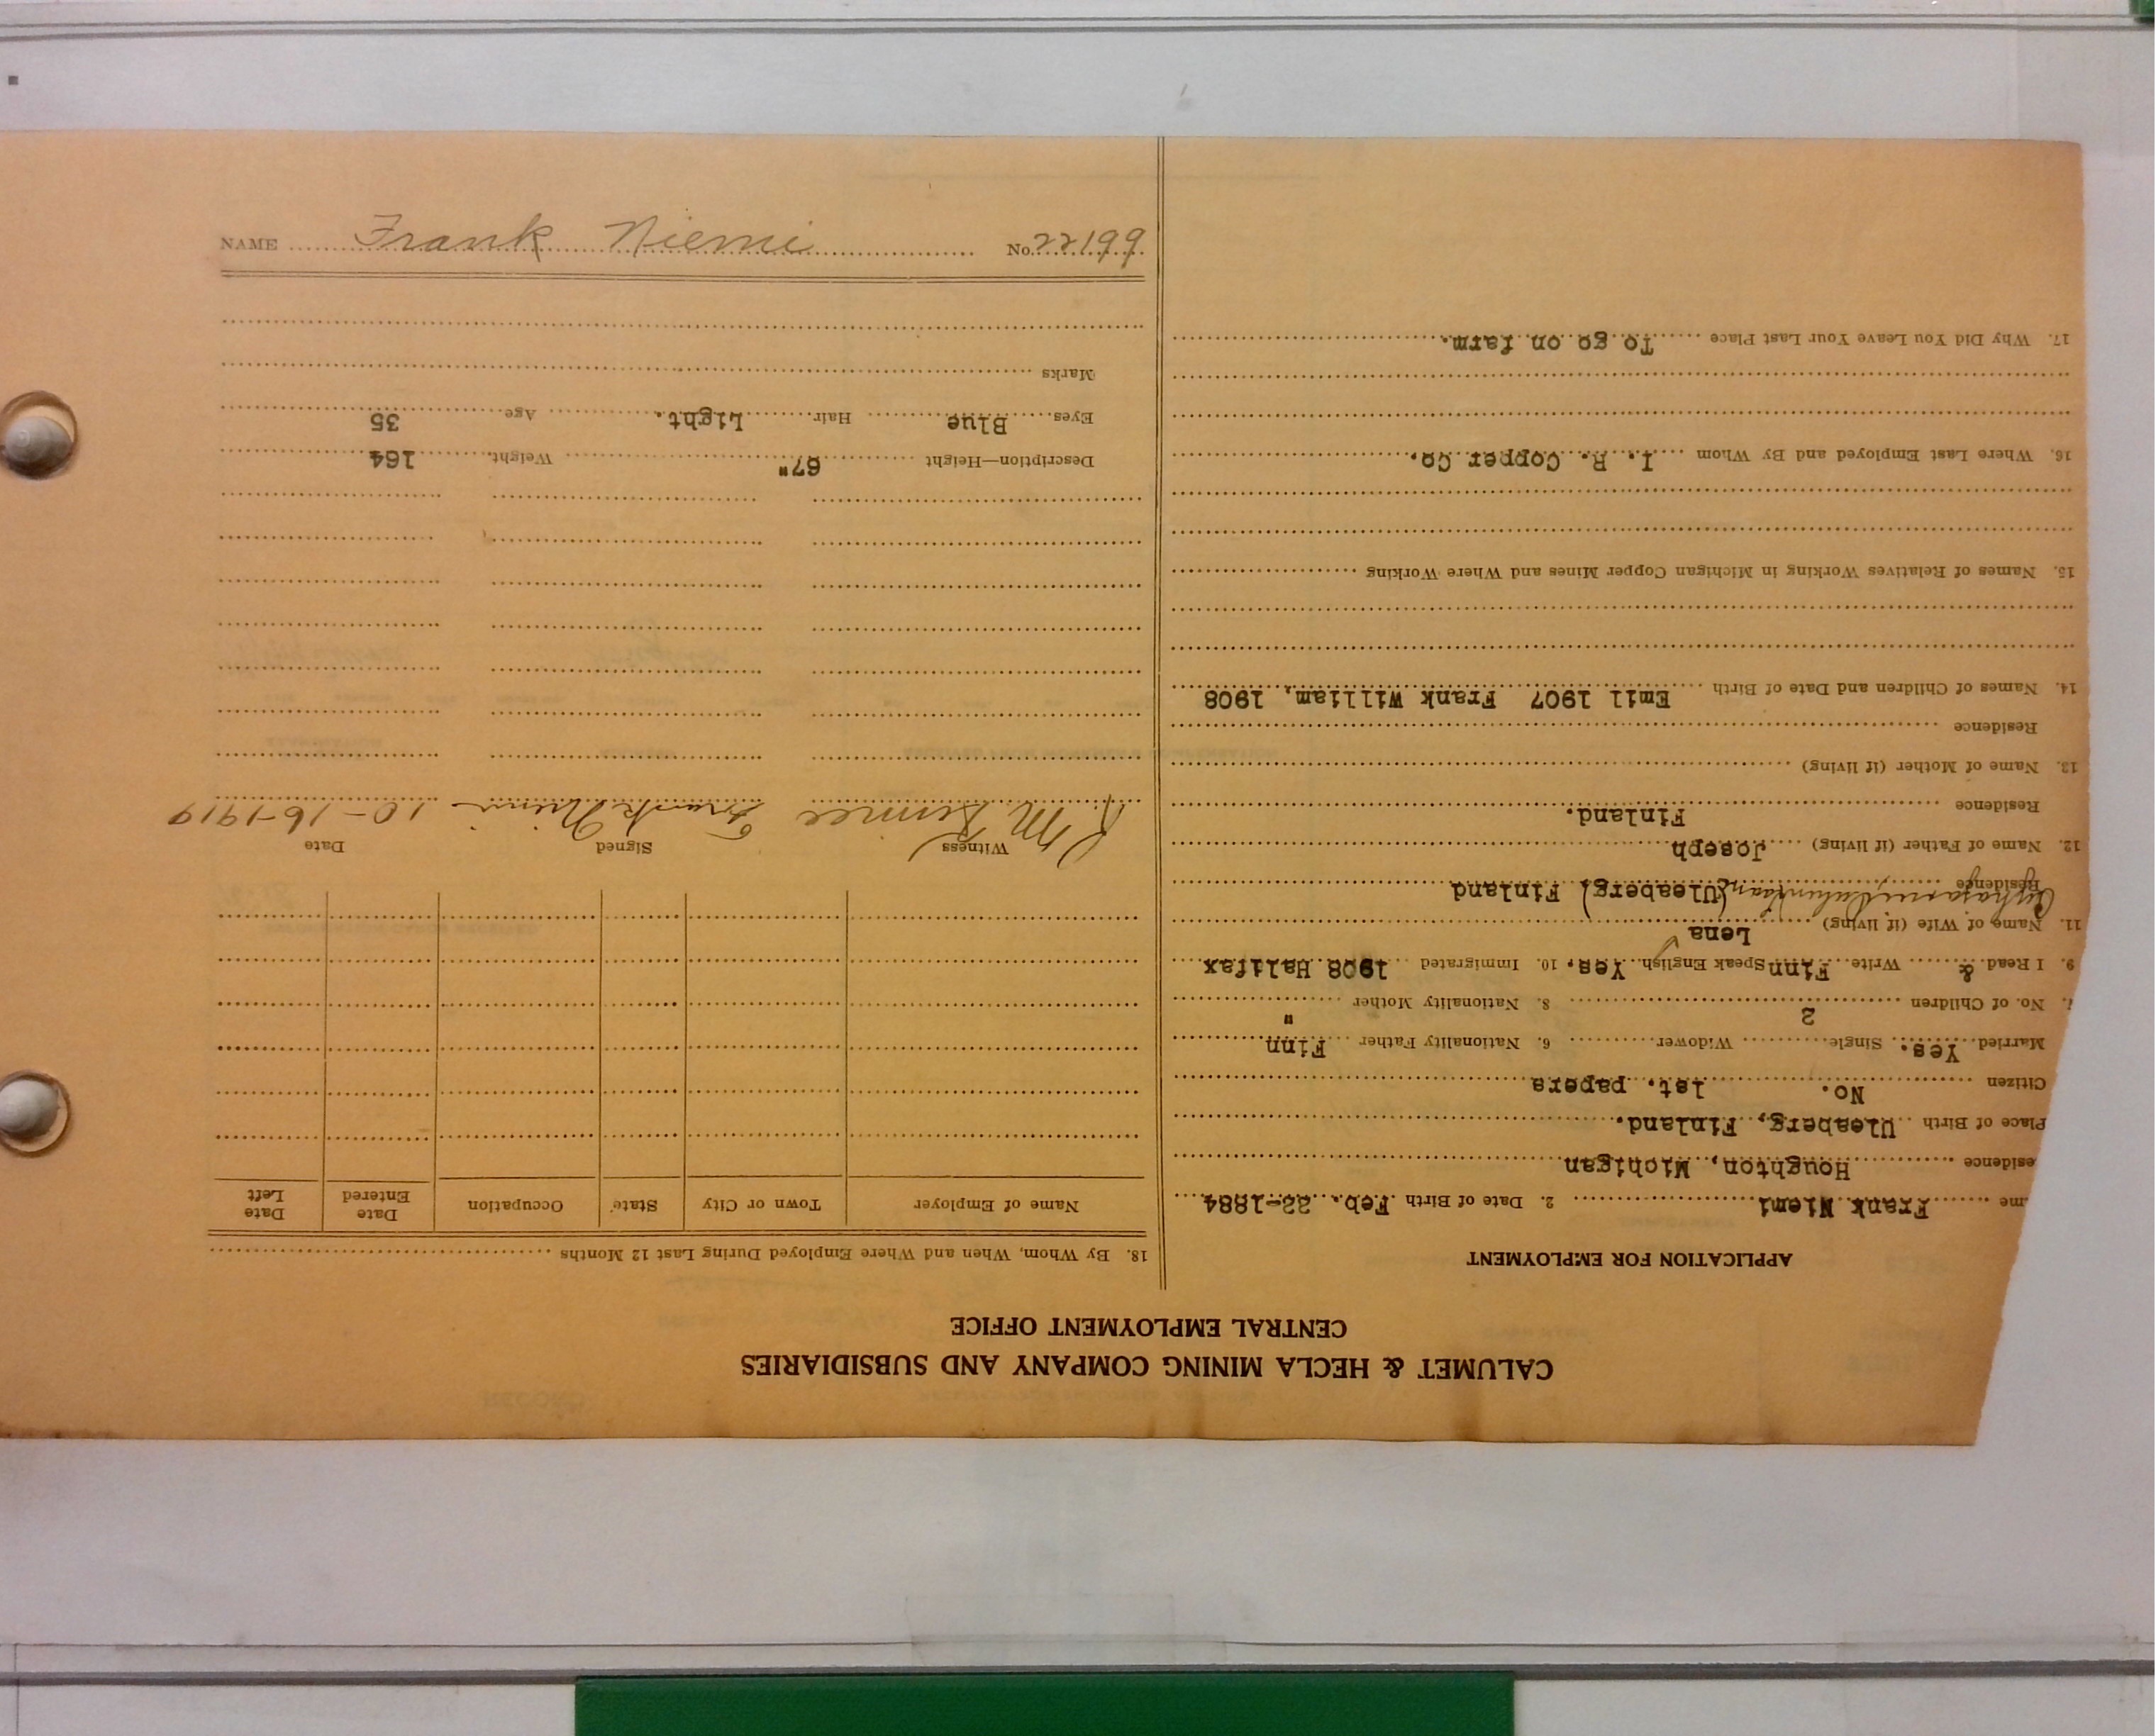 CALUMET & HECLA MINING COMPANY AND SUBSIDIARIES
CENTRAL EMPLOYMENT OFFICE
APPLICATION FOR EMPLOYMENT
me Frank Niemi 2. Date of Birth Feb. 22-1884
esidence Houghton, Michigan
Place of Birth Uleaberg, Finland.
Citizen No. 1st. papers
Married Yes. Single Widower 6. Nationality Father Finn
7. No. of Children 2 8. Nationality Mother "
9. I Read & Write Finn Speak English Yes. 10. Immigrated 1908 Halifax
11. Name of Wife (if living) Lena
Residence (Uleaberg) Finland
12. Name of Father (if living) Joseph
Residence Finland.
13. Name of Mother (if living)
Residence
14. Names of Children and Date of Birth Emil 1907 Frank William, 1908
15. Names of Relatives Working in Michigan Copper Mines and Where Working
16. Where Last Employed and By Whom I. R. Copper Co.
17. Why Did You Leave Your Last Place To go on farm.
18. By Whom, When and Where Employed During Last 12 Months
Name of Employer Town or City State Occupation Date Entered Date Left
Witness Signed Date
Frank Niemi 10-16-1919
Description—Height 67" Weight 164
Eyes Blue Hair Light. Age 35
Marks
NAME Frank Niemi No. 22199